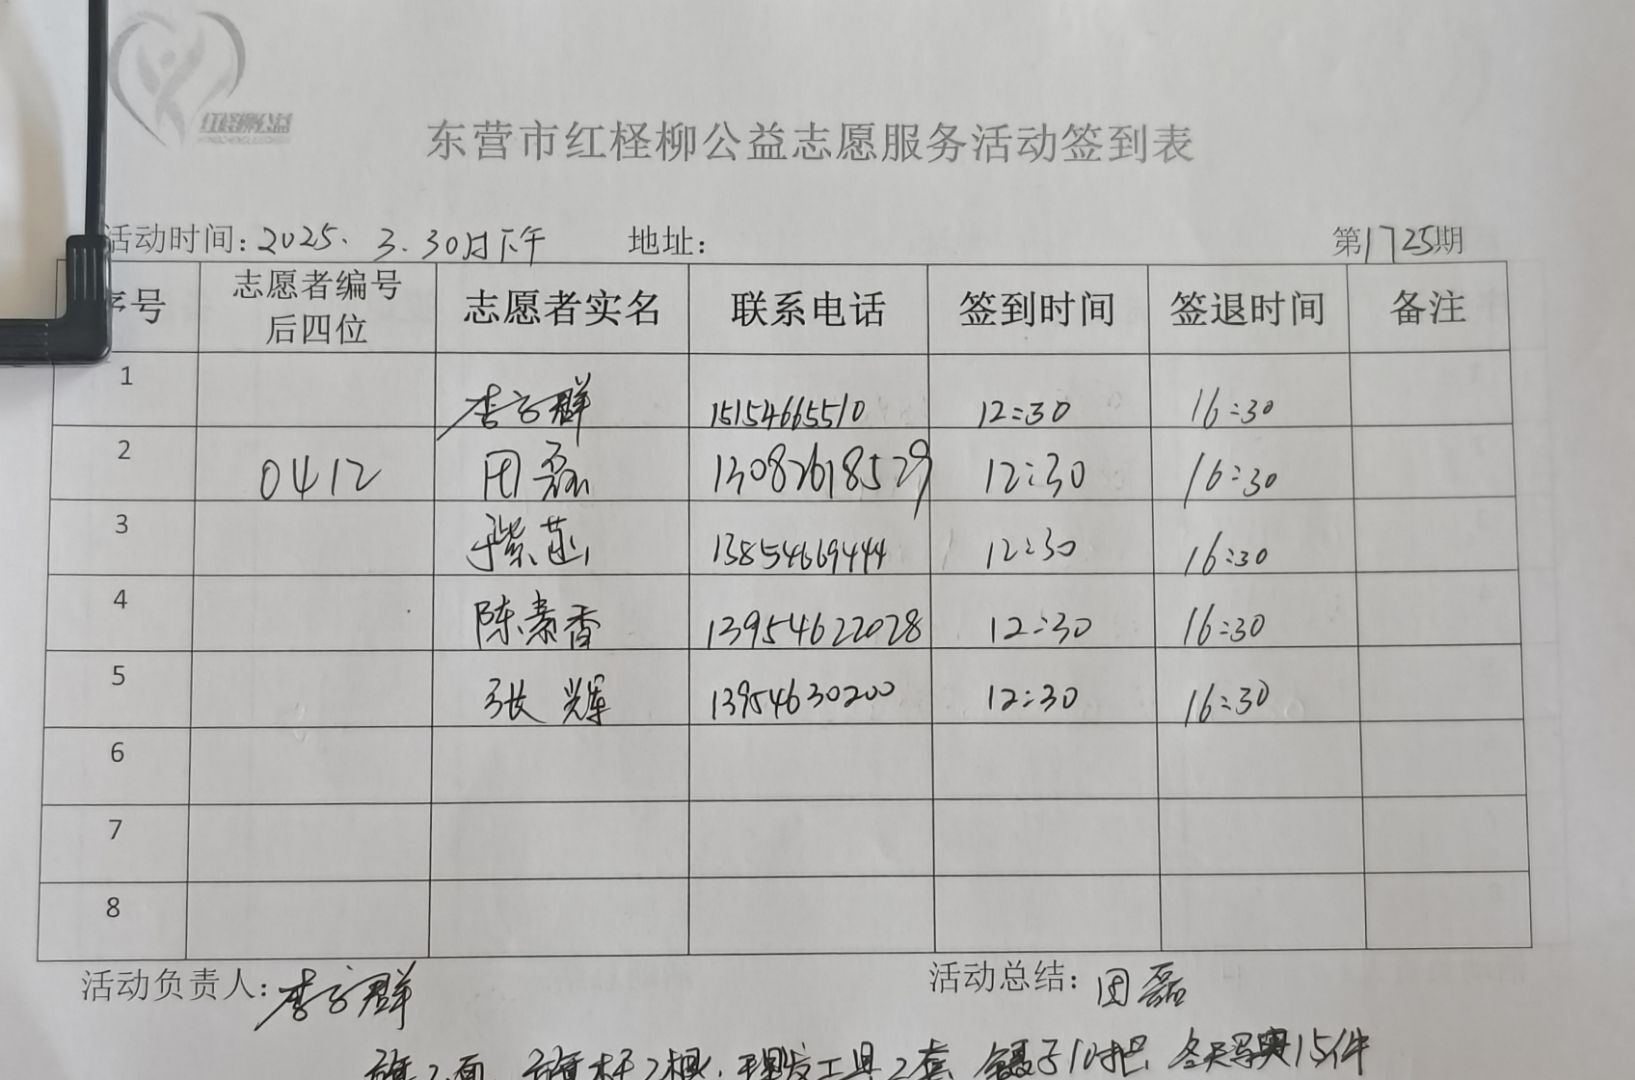 红柽柳公益
东营市红柽柳公益志愿服务活动签到表
活动时间：2025.3.30日下午 地址： 第1725期
序号 志愿者编号后四位 志愿者实名 联系电话 签到时间 签退时间 备注
1 李 群 15154665510 12:30 16:30
2 0412 田磊 13082618529 12:30 16:30
3 于紫 13854669444 12:30 16:30
4 陈素香 13954622028 12:30 16:30
5 张辉 13954630200 12:30 16:30
6
7
8
活动负责人：李 群 活动总结：田磊
旗2面 旗杆2根，理发工具2套 15件